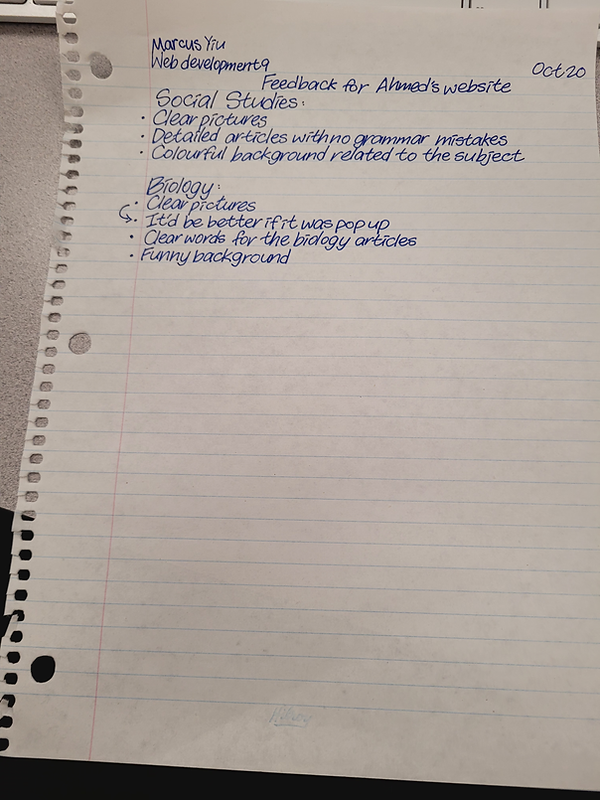 Marcus Yiu
Web development 9
Oct 20
Feedback for Ahmed's website
Social Studies:
• Clear pictures
• Detailed articles with no grammar mistakes
• Colourful background related to the subject
Biology:
• Clear pictures
• It'd be better if it was pop up
• Clear words for the biology articles
• Funny background